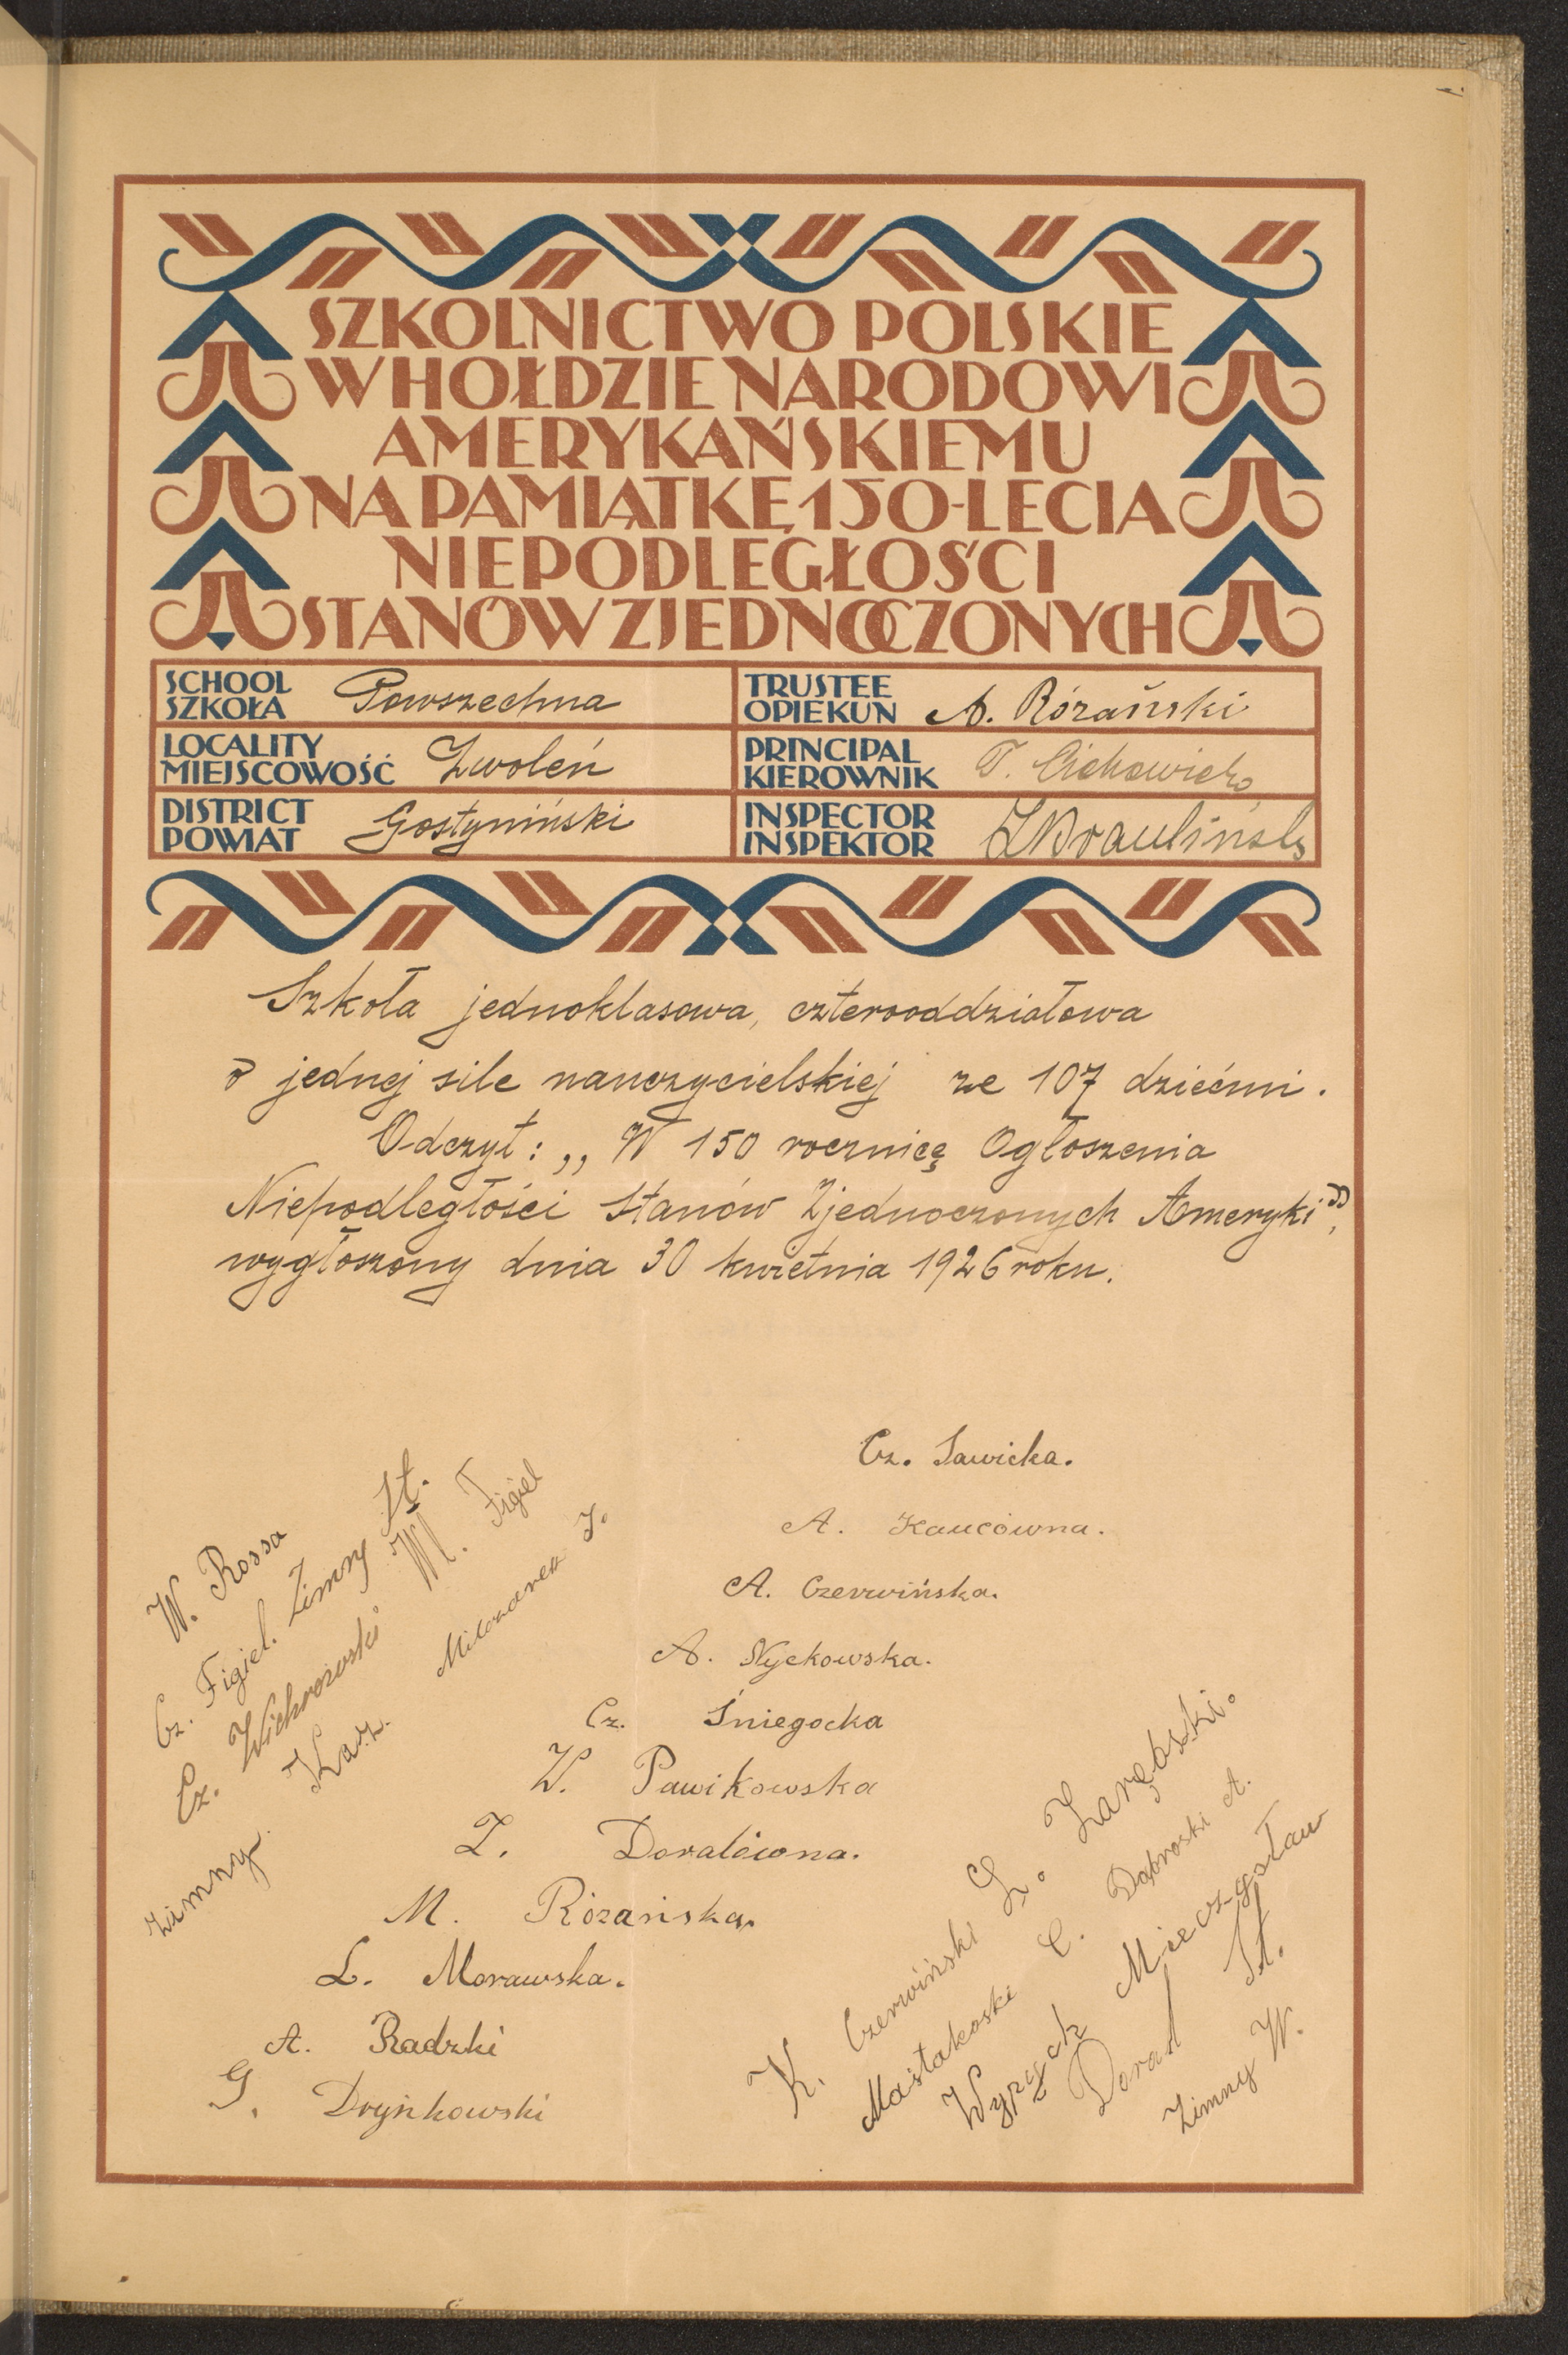 SZKOLNICTWO POLSKIE
W HOŁDZIE NARODOWI
AMERYKAŃSKIEMU
NA PAMIĄTKĘ 150-LECIA
NIEPODLEGŁOŚCI
STANÓW ZJEDNOCZONYCH
SCHOOL
SZKOŁA Powszechna
TRUSTEE
OPIEKUN A. Różański
LOCALITY
MIEJSCOWOŚĆ Zwoleń
PRINCIPAL
KIEROWNIK T. Cichowicz
DISTRICT
POWIAT Gostyniński
INSPECTOR
INSPEKTOR
Szkoła jednoklasowa, czterooddziałowa
o jednej sile nauczycielskiej ze 107 dziećmi.
Odczyt: „W 150 rocznicę Ogłoszenia
Niepodległości Stanów Zjednoczonych Ameryki”,
wygłoszony dnia 30 kwietnia 1926 roku.
Cz. Sawicka.
A. Kaucówna.
A. Czerwińska.
A. Nyckowska.
Cz. Śniegocka
W. Pawikowska
Z. Doratówna.
M. Rózańska.
L. Morawska.
A. Radzki
G. Dryńkowski
W. Rossa
Cz. Figiel. Zimny St.
Cz. Wichrowski M. Figiel
Zimny Kaz. Milczarek J.
K. Czerwiński Z. Zarębski.
C. Dąbroski A.
Wyrzych Mieczysław
Dorad St.
Zimny W.